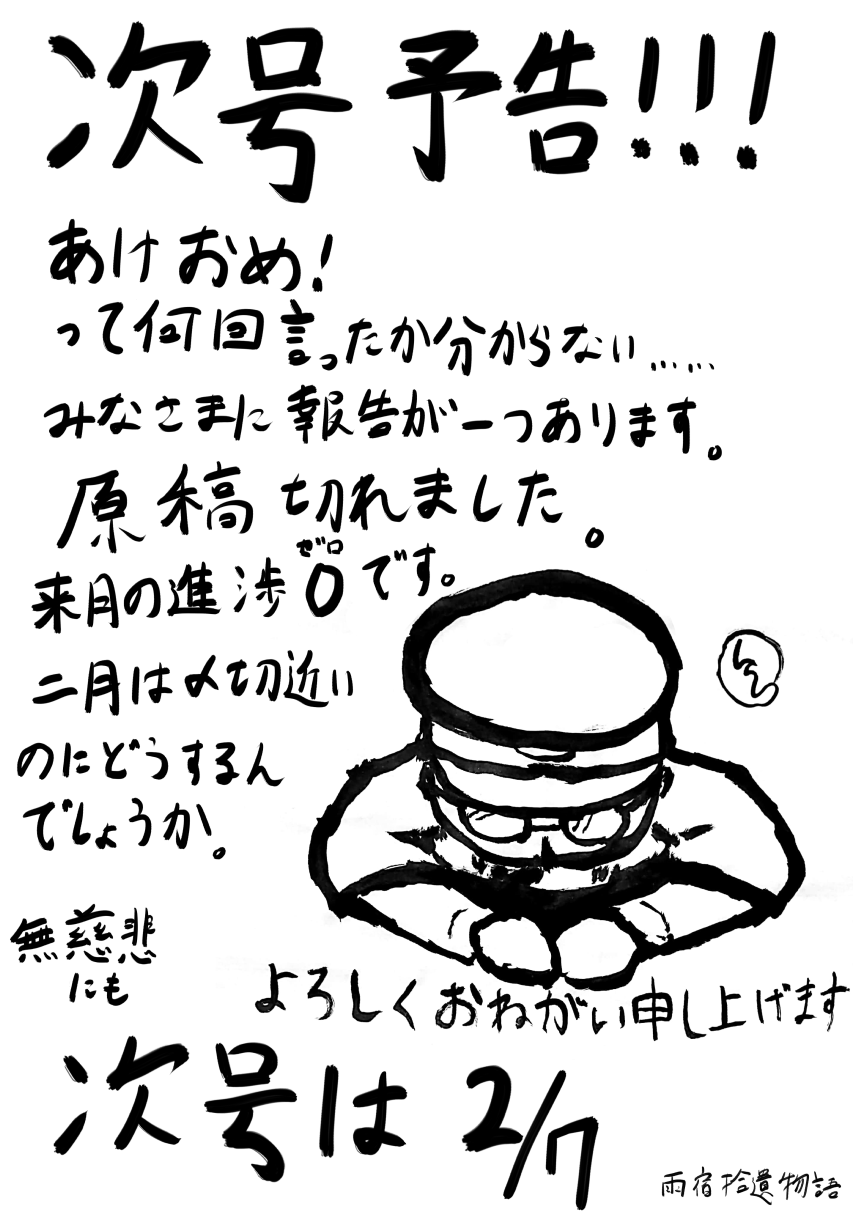 次号予告!!!
あけおめ!
って何回言ったか分からない……
みなさまに報告が一つあります。
原稿切れました。
ゼロ
来月の進捗0です。
二月は〆切近い
のにどうするん
でしょうか。
無慈悲
にも
よろしくおねがい申し上げます
次号は2/7
雨宿拾遺物語